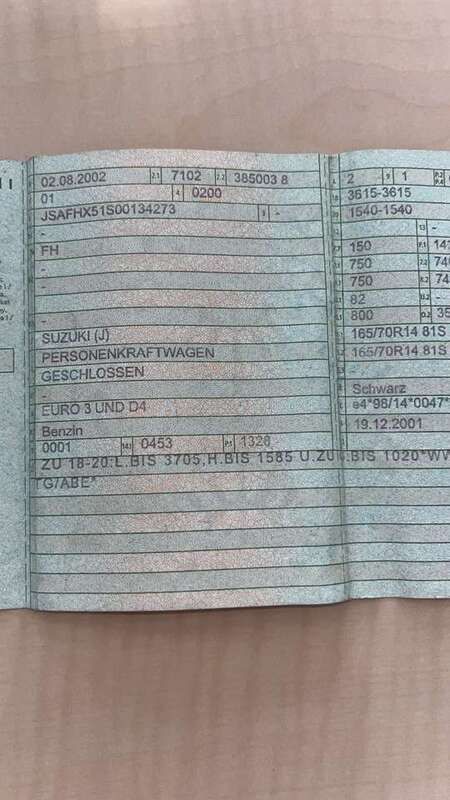 02.08.2002 2.1 7102 2.2 385003 8
01 4 0200
JSAFHX51S00134273 3 -
-
FH
-
-
-
SUZUKI (J)
PERSONENKRAFTWAGEN
GESCHLOSSEN
-
EURO 3 UND D4
Benzin
0001 14.1 0453 P.1 1328
2 9 1 P.2
3615-3615
1540-1540
- 13 -
150
750 7.2
750 8.2
82
800
165/70R14 81S
165/70R14 81S
-
-
Schwarz
e4*98/14*0047*
19.12.2001
ZU 18-20:L.BIS 3705,H.BIS 1585 U.ZU BIS 1020*
G/ABE*